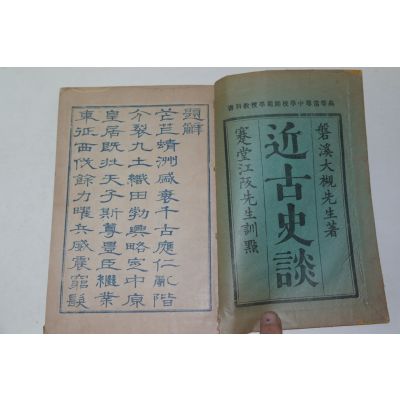 高等尋常中學校師範學校教科書
磐溪大槻先生著
近古史談
蹇堂江阪先生訓點
題辭
芒芒蜻洲千古應仁亂階
分裂九土織田勃興略定中原
皇居既壯天子斯尊豊臣繼業
東征西伐餘力曜兵威震窮髮